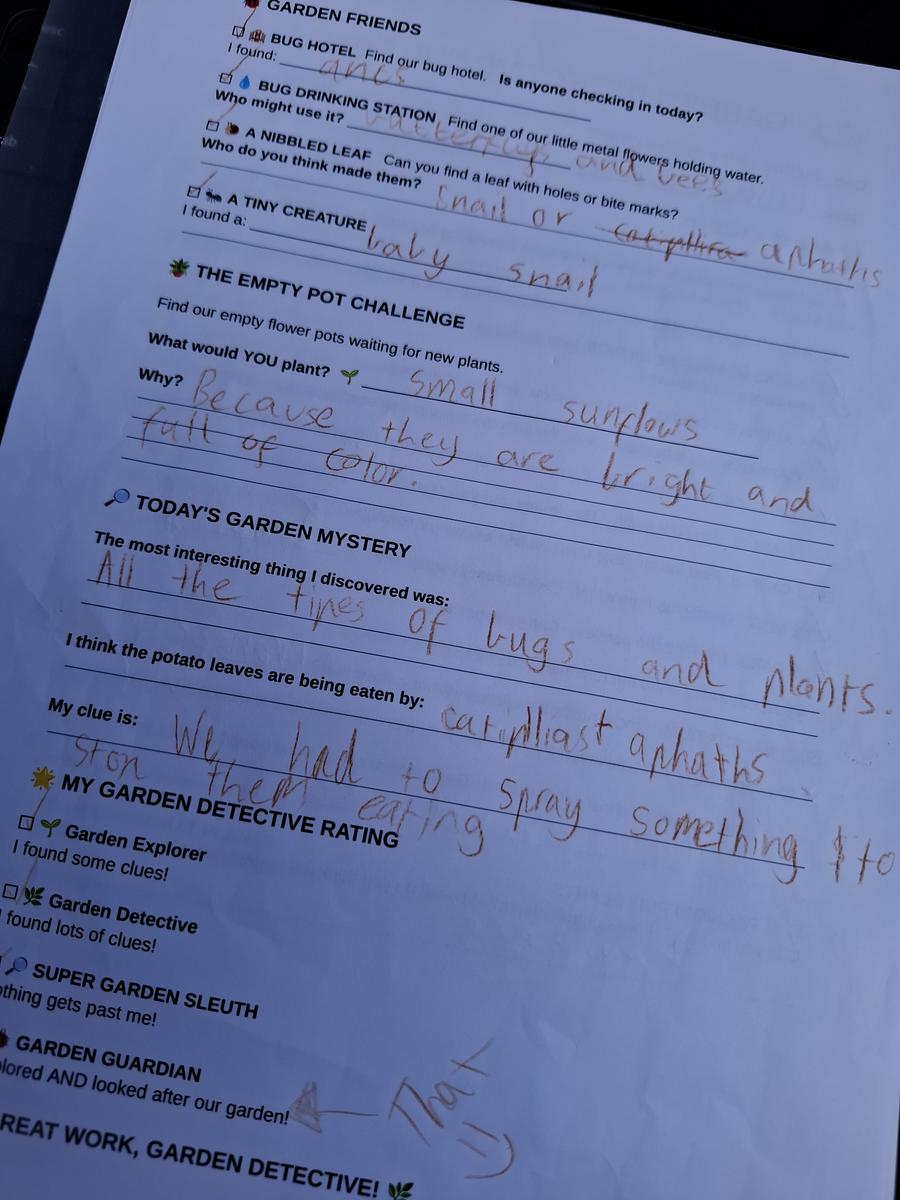 GARDEN FRIENDS
BUG HOTEL Find our bug hotel. Is anyone checking in today?
I found: ants
BUG DRINKING STATION Find one of our little metal flowers holding water.
Who might use it? butterflys and bees
A NIBBLED LEAF Can you find a leaf with holes or bite marks?
Who do you think made them? Snail or aphaths
A TINY CREATURE
I found a: baby snail
THE EMPTY POT CHALLENGE
Find our empty flower pots waiting for new plants.
What would YOU plant? Small sunflows
Why? Because they are bright and
full of color.
TODAY'S GARDEN MYSTERY
The most interesting thing I discovered was:
All the tipes of bugs and plants.
I think the potato leaves are being eaten by: aphaths
My clue is: We had to spray something to
stop them eating
MY GARDEN DETECTIVE RATING
Garden Explorer
I found some clues!
Garden Detective
found lots of clues!
SUPER GARDEN SLEUTH
othing gets past me!
GARDEN GUARDIAN
plored AND looked after our garden!
That
REAT WORK, GARDEN DETECTIVE!